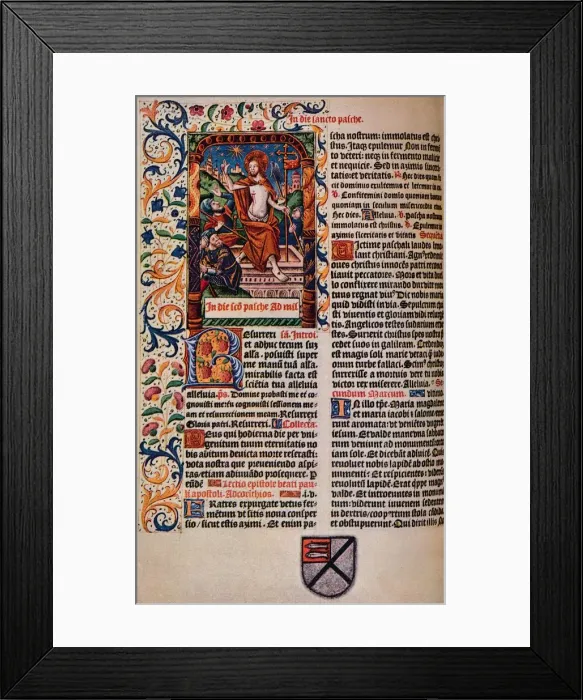 In die sancto pasche.
In die scō pasche Ad mis
Resurrexi sā. Introi.
et adhuc tecum sum
alla. posuisti super
me manū tuā alla.
mirabilis facta est
sciētia tua alleluia
alleluia. ps. Domine probasti me et co-
gnouisti me: tu cognouisti sessionem me-
am et resurrectionem meam. Resurrexi
Gloria patri. Resurrexi. Collecta.
Deus qui hodierna die per vni-
genitum tuum eternitatis no
bis aditum deuicta morte reserasti:
vota nostra que preueniendo aspi-
ras: etiam adiuuādo prosequere. P
eūdē Lectio epistole beati pau-
li apostoli. Ad corīthios. .i. v.
Fratres expurgate vetus fer-
mētum vt sitis noua consper
sio / sicut estis azimi. Et enim pa-
scha nostrum: immolatus est chri-
stus. Itaq; epulemur Non in fermē
to veteri: neq; in fermento malicie
et nequicie. Sed in azimis
et veritatis. Hec dies quam fe
cit dominus exultemus et letemur in ea
Confitemini domino quoniam
quoniam in seculum misericordia
Hec dies. Alleluia. pascha nostrum
immolatus est christus. Epulemur
azimis sinceritatis et veritatis Sequētia
Victime paschali laudes
lant christiani. Agn' redemit
oues christus innocēs patri reconci
liauit peccatores. Mors et vita du
lo conflixere mirando dux vite mor
tuus regnat viu' Dic nobis maria
quid vidisti in via. Sepulcrum chri
sti viuentis et gloriam vidi resurgē
tis. Angelicos testes sudarium et
stes. Surrexit christus spes nostra
cedet suos in galileam. Credendū
est magis soli marie veraci q̄ iudeo
rum turbe fallaci. Scimus christū
surrexisse a mortuis vere tu nobis
victor rex miserere. Alleluia. Se
cundum Marcum.
In illo tpe. Maria magdalene
et maria iacobi & salome
runt aromata: vt veniētes vngerēt
iesum. Et valde mane vna sabba
rum veniunt ad monumentū
iam sole. Et dicebāt adinuicē. Quis
reuoluet nobis lapidē ab ostio mo
numenti: Et respicientes: viderūt
reuolutū lapidē. Erat qppe magn'
valde. Et introeuntes in monumē
tum: viderunt iuuenem sedentē
in dextris / coopertum stola cādida
et obstupuerunt. Qui dixit illis